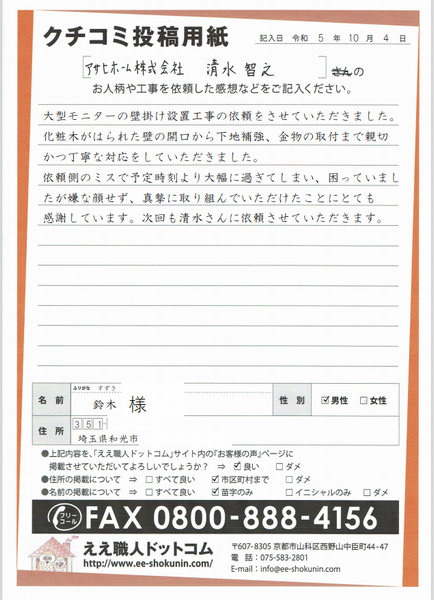 クチコミ投稿用紙
記入日 令和 5 年 10 月 4 日
[アサヒホーム株式会社 清水 智之 ]さんの
お人柄や工事を依頼した感想などをご記入ください。
大型モニターの壁掛け設置工事の依頼をさせていただきました。
化粧木がはられた壁の開口から下地補強、金物の取付まで親切
かつ丁寧な対応をしていただきました。
依頼側のミスで予定時刻より大幅に過ぎてしまい、困っていまし
たが嫌な顔せず、真摯に取り組んでいただけたことにとても
感謝しています。次回も清水さんに依頼させていただきます。
ふりがな すずき
名前 鈴木 様 性別 ☑男性 □女性
住所 351-
埼玉県和光市
●上記内容を、「ええ職人ドットコム」サイト内の『お客様の声』ページに
掲載させていただいてよろしいでしょうか? ⇒ ☑良い □ダメ
●住所の掲載について ⇒ □すべて良い ☑市区町村まで □ダメ
●名前の掲載について ⇒ □すべて良い ☑苗字のみ □イニシャルのみ □ダメ
フリーコール FAX 0800-888-4156
ええ職人ドットコム
http://www.ee-shokunin.com/
〒607-8305 京都市山科区西野山中臣町44-47
電話:075-583-2801
E-mail:info@ee-shokunin.com